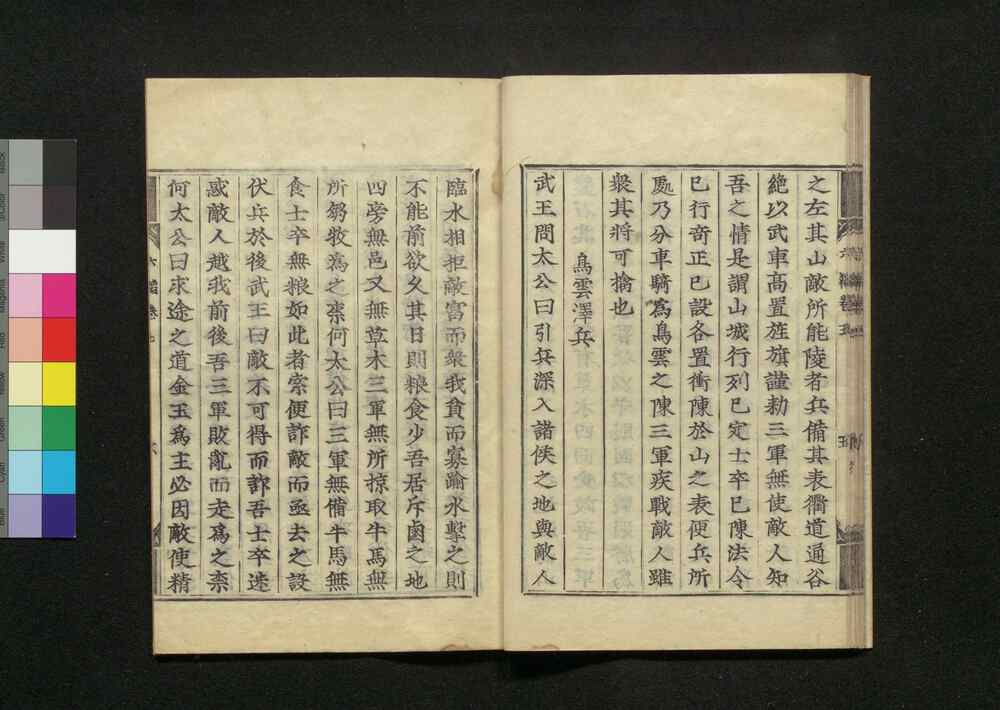 之左其山敵所能陵者兵備其表衢道通谷
絶以武車高置旌旗謹勅三軍無使敵人知
吾之情是謂山城行列已定士卒已陳法令
已行奇正已設各置衝陳於山之表便兵所
處乃分車騎爲烏雲之陳三軍疾戰敵人雖
衆其將可擒也
烏雲澤兵
武王問太公曰引兵深入諸侯之地與敵人
臨水相拒敵富而衆我貧而寡踰水擊之則
不能前欲久其日則粮食少吾居斥鹵之地
四旁無邑又無草木三軍無所掠取牛馬無
所芻牧爲之柰何太公曰三軍無備牛馬無
食士卒無粮如此者索便詐敵而亟去之設
伏兵於後武王曰敵不可得而詐吾士卒迷
惑敵人越我前後吾三軍敗亂而走爲之柰
何太公曰求途之道金玉爲主必因敵使精
六韜卷五
五
六韜卷
六